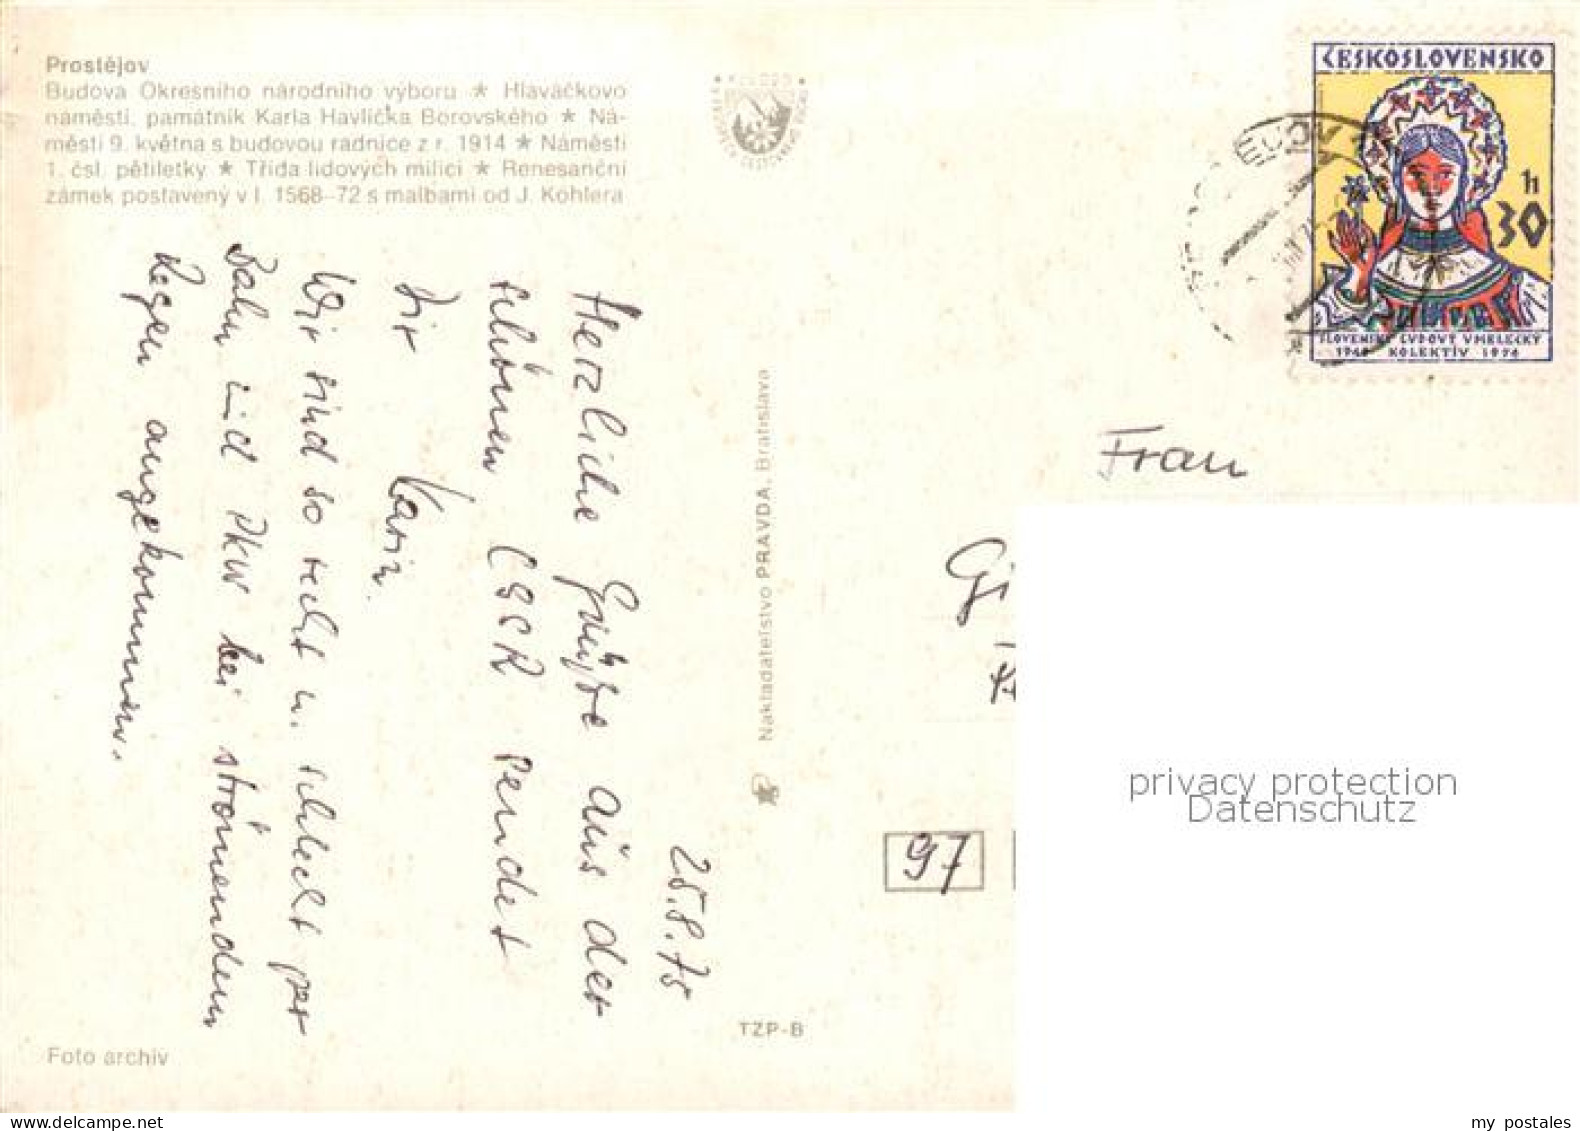 Prostějov
Budova Okresního národního výboru ★ Hlaváčkovo
náměstí, památník Karla Havlíčka Borovského ★ Ná-
městí 9. května s budovou radnice z r. 1914 ★ Náměstí
1. čsl. pětiletky ★ Třída lidových milicí ★ Renesanční
zámek postavený v l. 1568–72 s malbami od J. Köhlera
25.8.75
Herzliche Grüße aus der
schönen ČSSR sendet
Dir Karin.
Wir sind so recht u. schlecht per
Bahn und PKW bei strömendem
Regen angekommen.
Foto archív
Nakladateľstvo PRAVDA, Bratislava
TZP-B
ČESKOSLOVENSKO
30 h
SLOVENSKÝ ĽUDOVÝ UMELECKÝ
1949 KOLEKTÍV 1974
Frau
97
privacy protection
Datenschutz
my postales